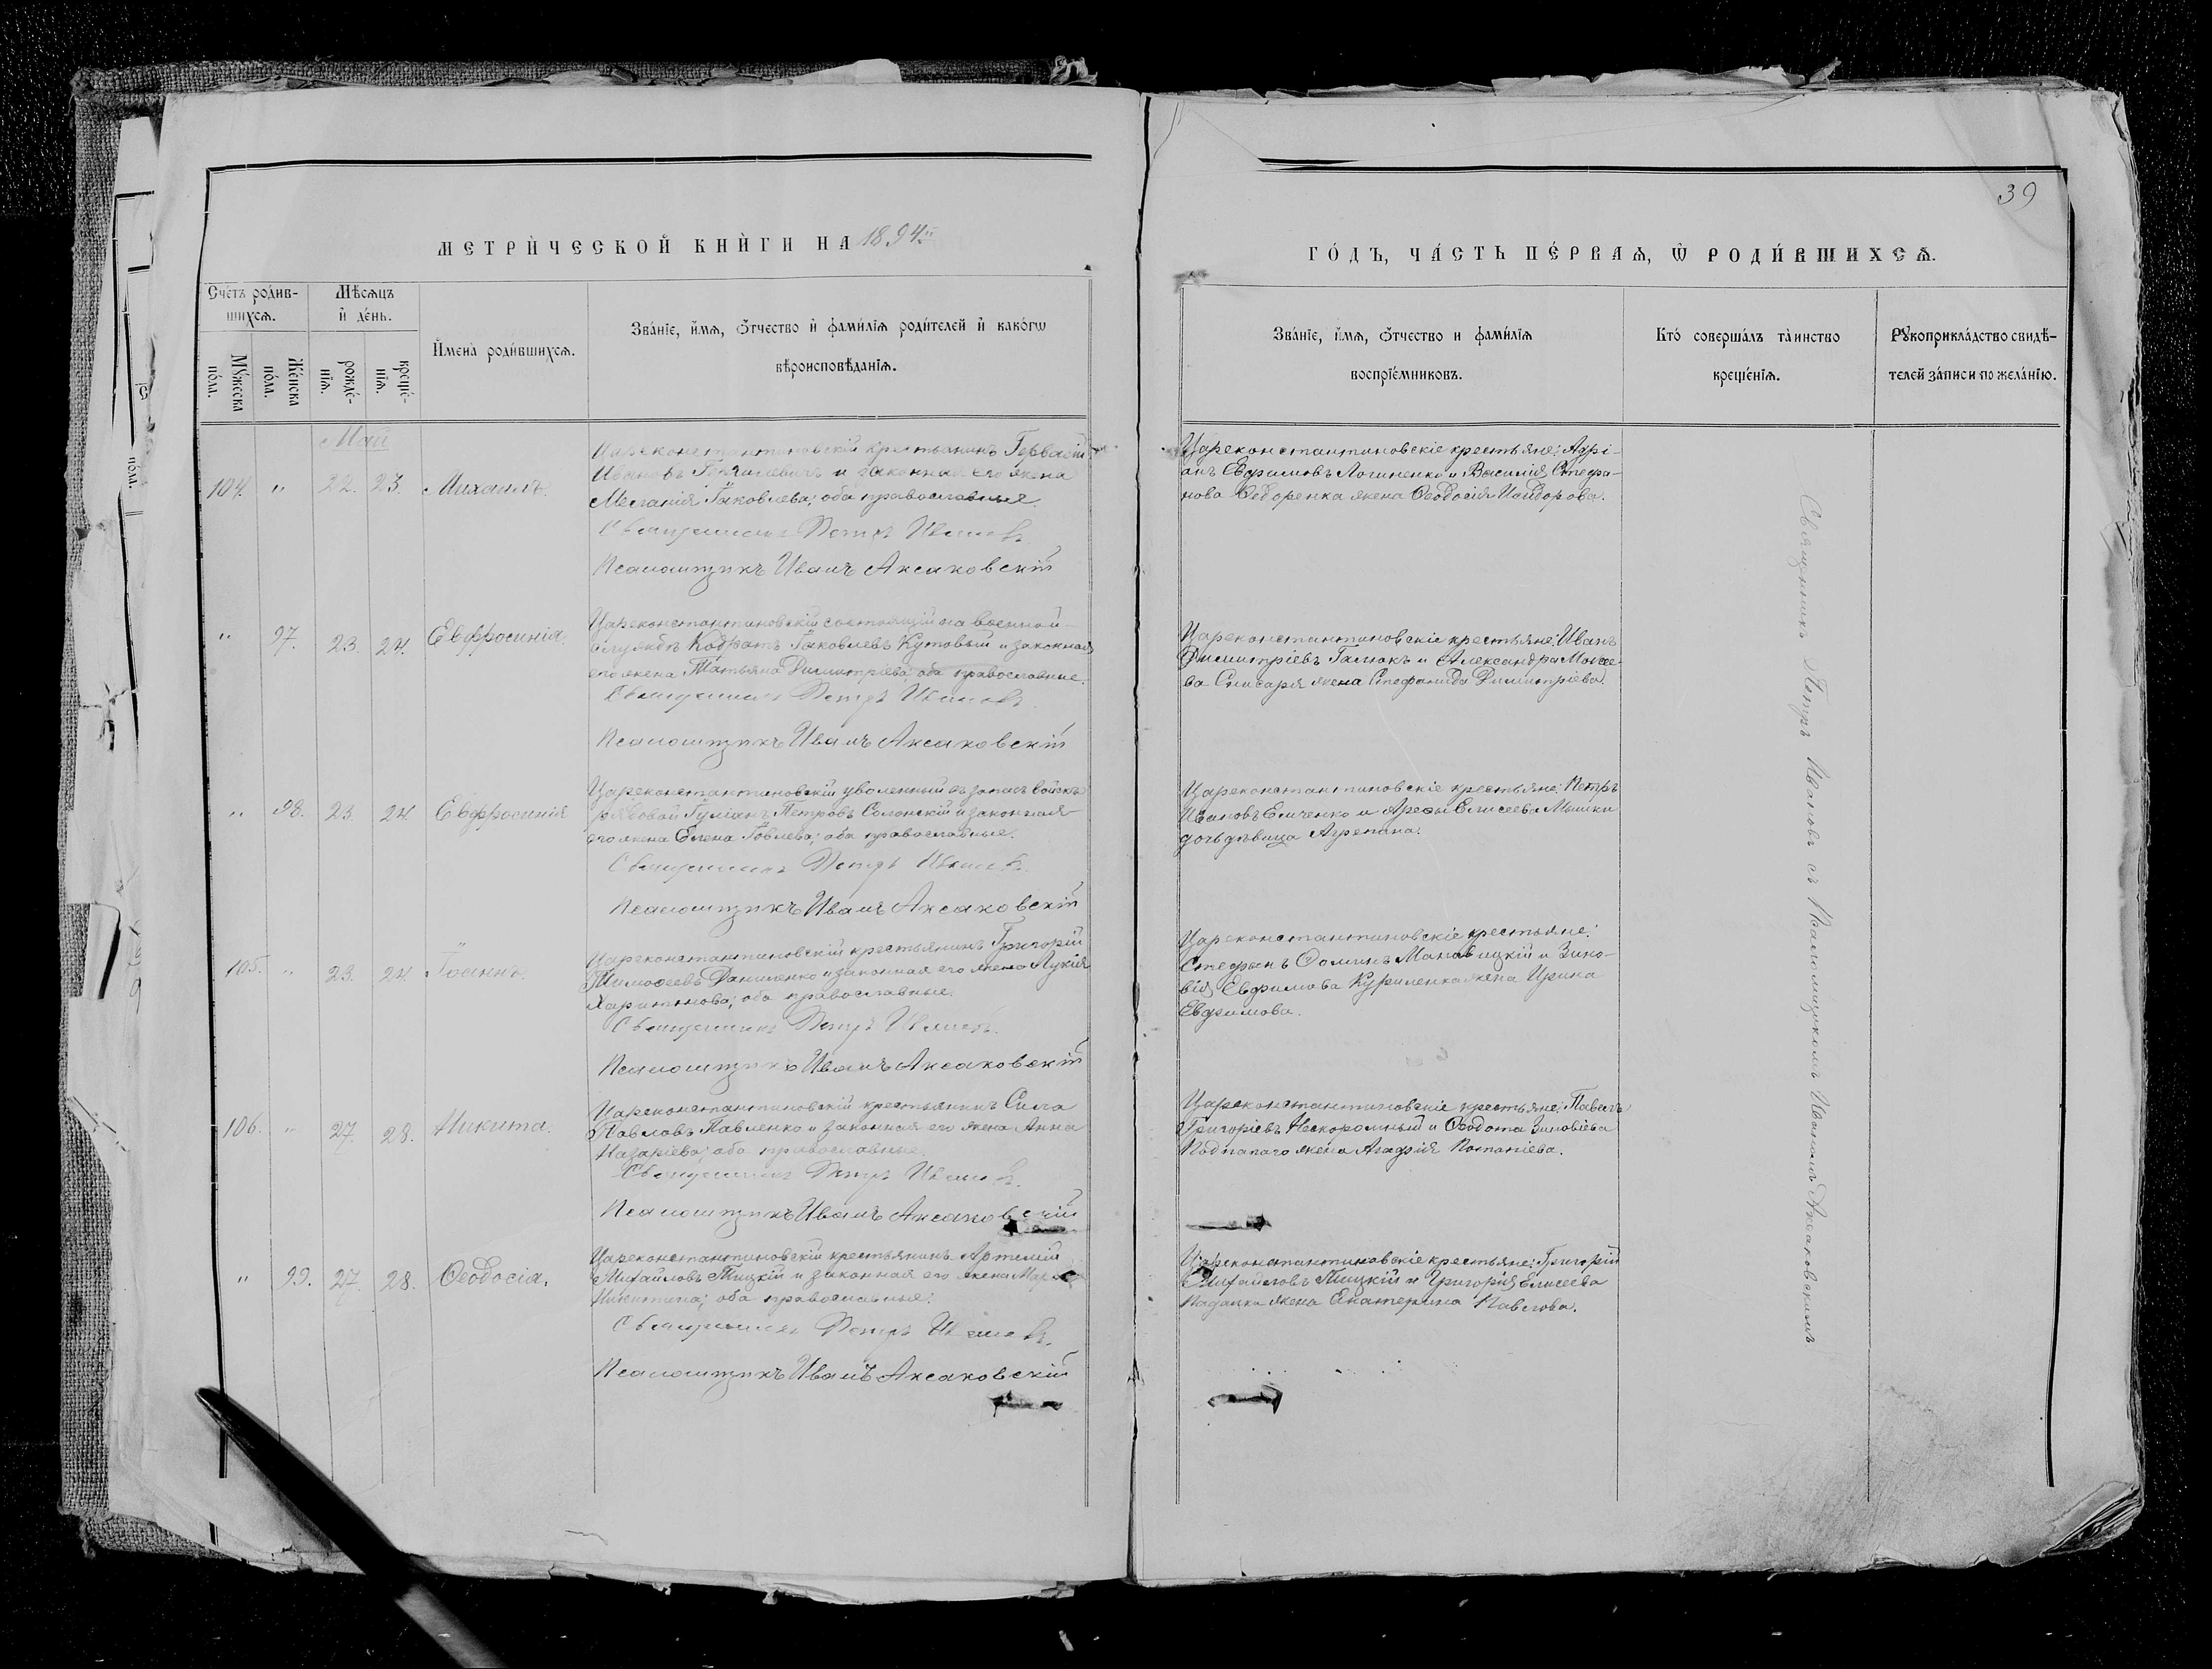 39
МЕТРИЧЕСКОЙ КНИГИ НА 1894й
ГОДЪ, ЧАСТЬ ПЕРВАѦ, Ѡ РОДИВШИХСѦ.
Счетъ родив-
шихсѧ.
Мѣсѧцъ
и день.
Мужеска
пола.
Женска
пола.
рожде-
нїѧ.
креще-
нїѧ.
Имена родившихсѧ.
Званїе, имѧ, ѿчество и фамилїѧ родителей и какогѡ
вѣроисповѣданїѧ.
Званїе, имѧ, ѿчество и фамилїѧ
воспрїемниковъ.
Кто совершалъ таинство
крещенїѧ.
Рукоприкладство свидѣ-
телей записи по желанїю.
Май
104. " 22. 23. Михаилъ.
Цареконстантиновскій крестьянинъ Гервасій
Ивановъ и законная его жена
Меланія Яковлева; оба православные.
Священникъ Петръ Ивановъ
Псаломщикъ Иванъ Аксаковскій
Цареконстантиновскіе крестьяне: Адрі-
анъ Евфимовъ Логиненко и Василія Стефа-
нова Ѳедоренка жена Ѳеодосія Исидорова.
" 97. 23. 24. Евфросинія.
Цареконстантиновскій состоящій на военной
службѣ Кодратъ Яковлевъ Кутовый и законная
его жена Татьяна Димитріева; оба православные.
Священникъ Петръ Ивановъ
Псаломщикъ Иванъ Аксаковскій
Цареконстантиновскіе крестьяне: Иванъ
Димитріевъ и Александра Моисее-
ва Слисаря жена Стефанида Димитріева.
" 98. 23. 24 Евфросинія
Цареконстантиновскій уволенный въ запасъ войскъ
рядовой Іуліанъ Петровъ Солонскій и законная
его жена Елена Іовлева; оба православные.
Священникъ Петръ Ивановъ
Псаломщикъ Иванъ Аксаковскій
Цареконстантиновскіе крестьяне: Петръ
Ивановъ Еличенко и Елисеева Мышки
дочь дѣвица Агрепина.
105. " 23. 24. Іоаннъ.
Цареконстантиновскій крестьянинъ Григорій
Тимоѳеевъ Даниленко и законная его жена Лукія
Харитонова; оба православные.
Священникъ Петръ Ивановъ.
Псаломщикъ Иванъ Аксаковскій
Цареконстантиновскіе крестьяне:
Стефанъ Ѳоминъ и Зино-
вія Евфимова Куриленка жена Ирина
Евфимова.
106. " 27. 28. Никита.
Цареконстантиновскій крестьянинъ Сила
Павловъ Павленко и законная его жена Анна
Назаріева; оба православные.
Священникъ Петръ Ивановъ.
Псаломщикъ Иванъ Аксаковскій
Цареконстантиновскіе крестьяне: Павелъ
Григоріевъ Нескоромный и Ѳеодота Зиновіева
жена Агафія Потапіева.
" 99. 27. 28. Ѳеодосія.
Цареконстантиновскій крестьянинъ Артемій
Михайловъ Тицкій и законная его жена
Никитина; оба православные.
Священникъ Петръ Ивановъ.
Псаломщикъ Иванъ Аксаковскій
Цареконстантиновскіе крестьяне: Григорій
Михайловъ Тицкій и Григорія Елисеева
Падалки жена Екатерина Павлова.
Священникъ Петръ Ивановъ съ Псаломщикомъ Иваномъ Аксаковскимъ